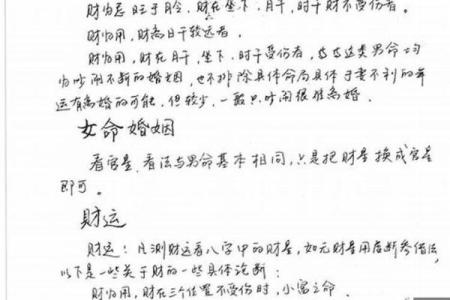 财为忌旺于月令,财在坐下、月干,时干财不受伤者。
财为用,财离日干较远者。
财为用,财在月干,坐下,时干受伤者,这类男命均
为吵闹不断的婚姻,也不排除具体命局具体于妻不利的年
运有离婚的可能,但较少,一般只吵闹很难离婚。
女命婚姻
看官星,看法与男命基本相同,只是把财星换成官星
即可。
财运
财运:凡测财运看八字中的财星,如无财星用
以下是一些关于财的一些具体论断:
财为用,财在三个位置不受伤时,小富之命。